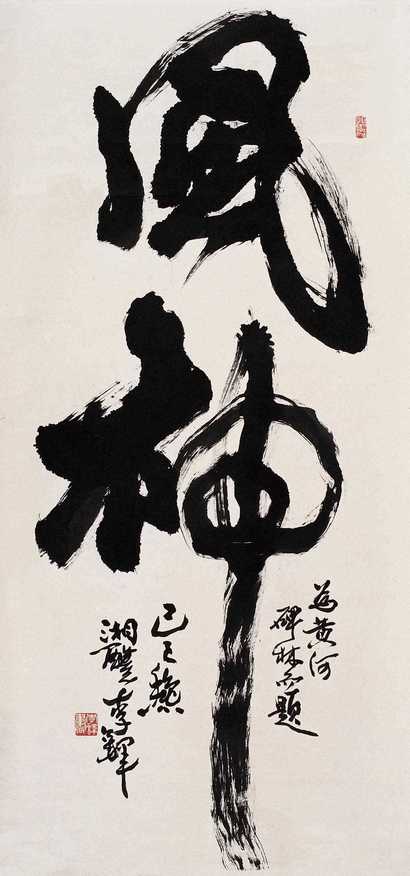 風神
為黄河
碑林而題
己巳秋
湘醴李鐸